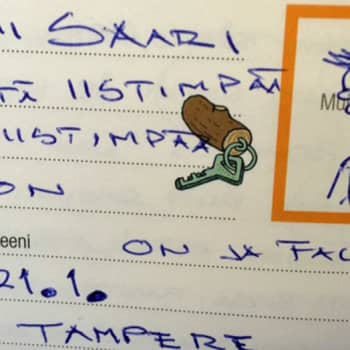 SAARI
TÄ IISTIMPÄÄ
IISTIMPÄÄ
ON
eeni ON JA FAC
21.1.
TAMPERE